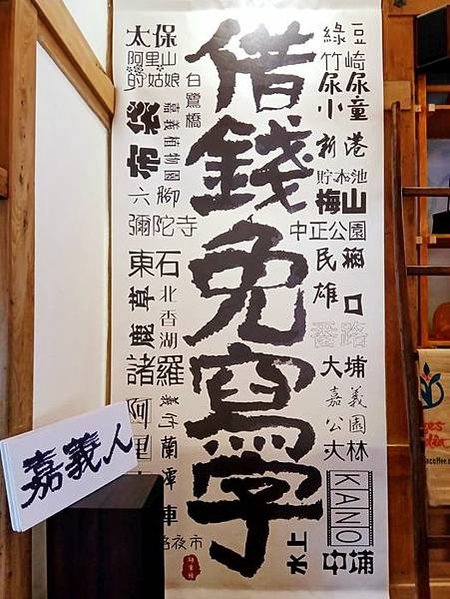 借錢免寫字
太保
阿里山
的姑娘
白鷺橋
布袋
嘉義植物園
六腳
彌陀寺
東石
鹿草
北香湖
諸羅
阿里
蘭潭
車
路夜市
綠豆
竹崎
尿尿小童
新港
貯木池
梅山
中正公園
民雄
口
番路
大埔
嘉義公園
大林
KANO
水上
中埔
嘉義人